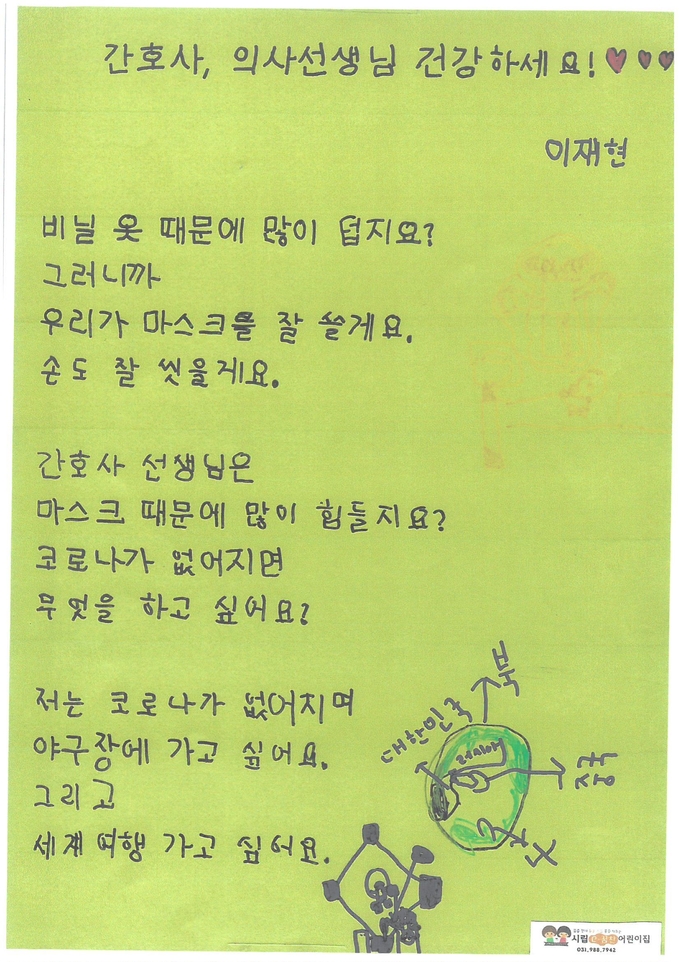 간호사, 의사선생님 건강하세요!♥♥♥
이재현
비닐 옷 때문에 많이 덥지요?
그러니까
우리가 마스크를 잘 쓸게요.
손도 잘 씻을게요.
간호사 선생님은
마스크 때문에 많이 힘들지요?
코로나가 없어지면
무엇을 하고 싶어요?
저는 코로나가 없어지며
야구장에 가고 싶어요.
그리고
세계여행 가고 싶어요.
북
대한민국
러시아
중국
시립 어린이집
031.988.7942